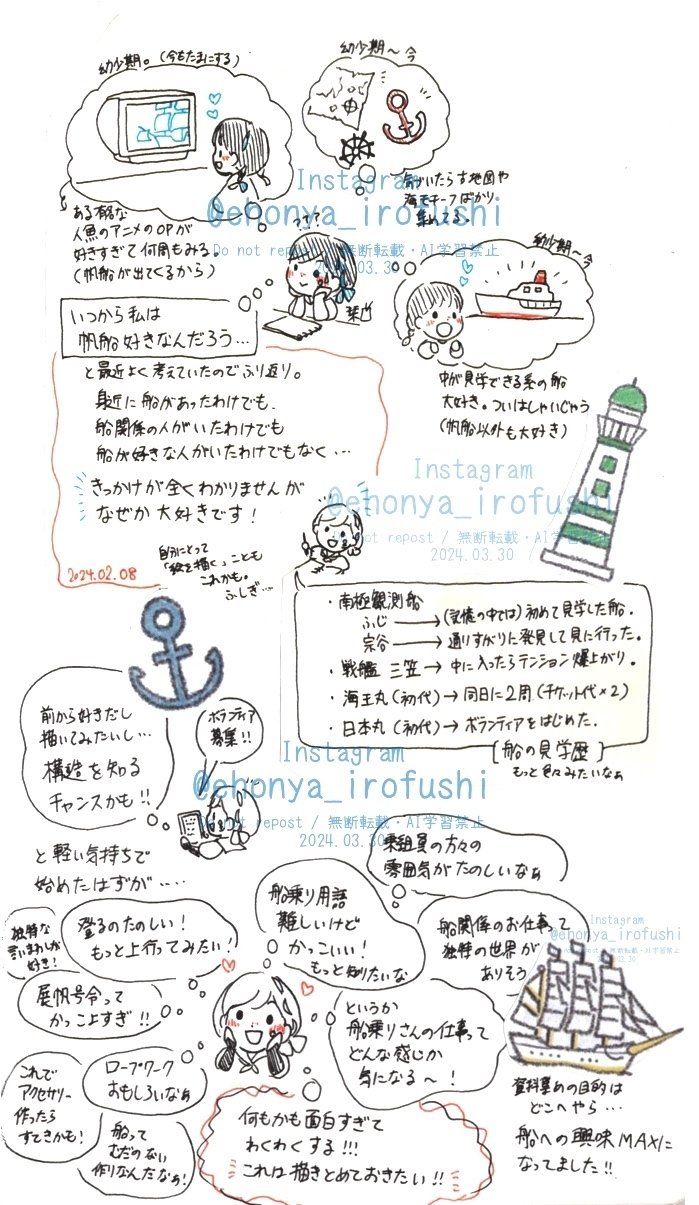 幼少期。(今もたまにする)
ある有名な
人魚のアニメのOPが
好きすぎて何周もみる。
(帆船が出てくるから)
幼少期〜今
気づいたら古地図や
海モチーフばかり
集めてる。
Instagram
@ehonya_irofushi
Do not repost / 無断転載・AI学習禁止
2024.03.30
いつから私は
帆船好きなんだろう…
幼少期〜今
中が見学できる系の船
大好き。ついはしゃいじゃう
(帆船以外も大好き)
と最近よく考えていたのでふり返り。
身近に船があったわけでも、
船関係の人がいたわけでも
船が好きな人がいたわけでもなく…
きっかけが全くわかりませんが
なぜか大好きです!
2024.02.08
自分にとって
「絵を描く」ことも
これかも。
ふしぎ…
Instagram
@ehonya_irofushi
Do not repost / 無断転載・AI学習禁止
2024.03.30
・南極観測船
ふじ→(記憶の中では)初めて見学した船。
宗谷→通りすがりに発見して見に行った。
・戦艦 三笠→中に入ったらテンション爆上がり。
・海王丸(初代)→同日に2周(チケット代×2)
・日本丸(初代)→ボランティアをはじめた。
[船の見学歴]
もっと色々みたいなぁ
前から好きだし
描いてみたいし…
構造を知る
チャンスかも!!
ボランティア
募集!!
Instagram
@ehonya_irofushi
Do not repost / 無断転載・AI学習禁止
2024.03.30
と軽い気持ちで
始めたはずが….
乗組員の方々の
雰囲気がたのしいなぁ
船乗り用語
難しいけど
かっこいい!
もっと知りたいな
船関係のお仕事って
独特の世界が
ありそう
Instagram
@ehonya_irofushi
Do not repost / 無断転載・AI学習禁止
2024.03.30
独特な
言いまわしが
好き!
登るのたのしい!
もっと上行ってみたい!
展帆号令って
かっこよすぎ!!
というか
船乗りさんの仕事って
どんな感じか
気になる〜!
これで
アクセサリー
作ったら
すてきかも!
ロープワーク
おもしろいなぁ
船って
むだのない
作りなんだなぁ!
何もかも面白すぎて
わくわくする!!!
これは描きとめておきたい!!
資料集めの目的は
どこへやら…
船への興味MAXに
なってました!!